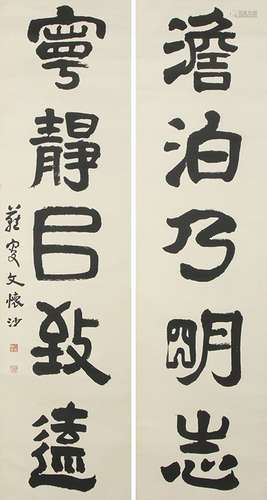 澹泊乃明志
寧靜㠯致遠
燕叟文懷沙